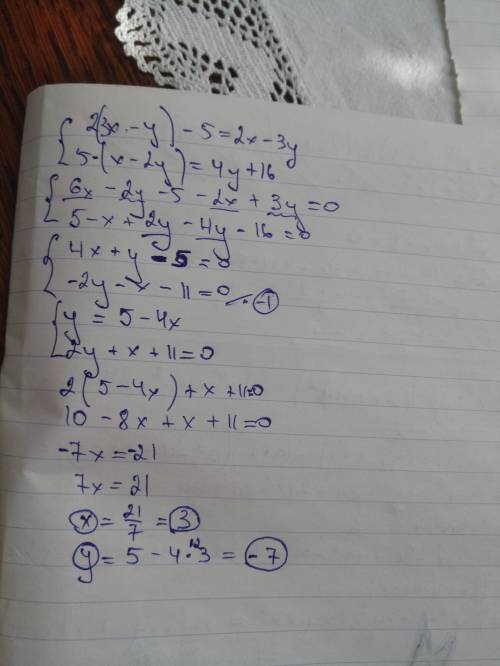 2(3x - y) - 5 = 2x - 3y
5 - (x - 2y) = 4y + 16
6x - 2y - 5 - 2x + 3y = 0
5 - x + 2y - 4y - 16 = 0
4x + y - 5 = 0
-2y - x - 11 = 0 /· -1
y = 5 - 4x
2y + x + 11 = 0
2(5 - 4x) + x + 11 = 0
10 - 8x + x + 11 = 0
-7x = -21
7x = 21
x = 21/7 = 3
y = 5 - 4·3 12 = -7